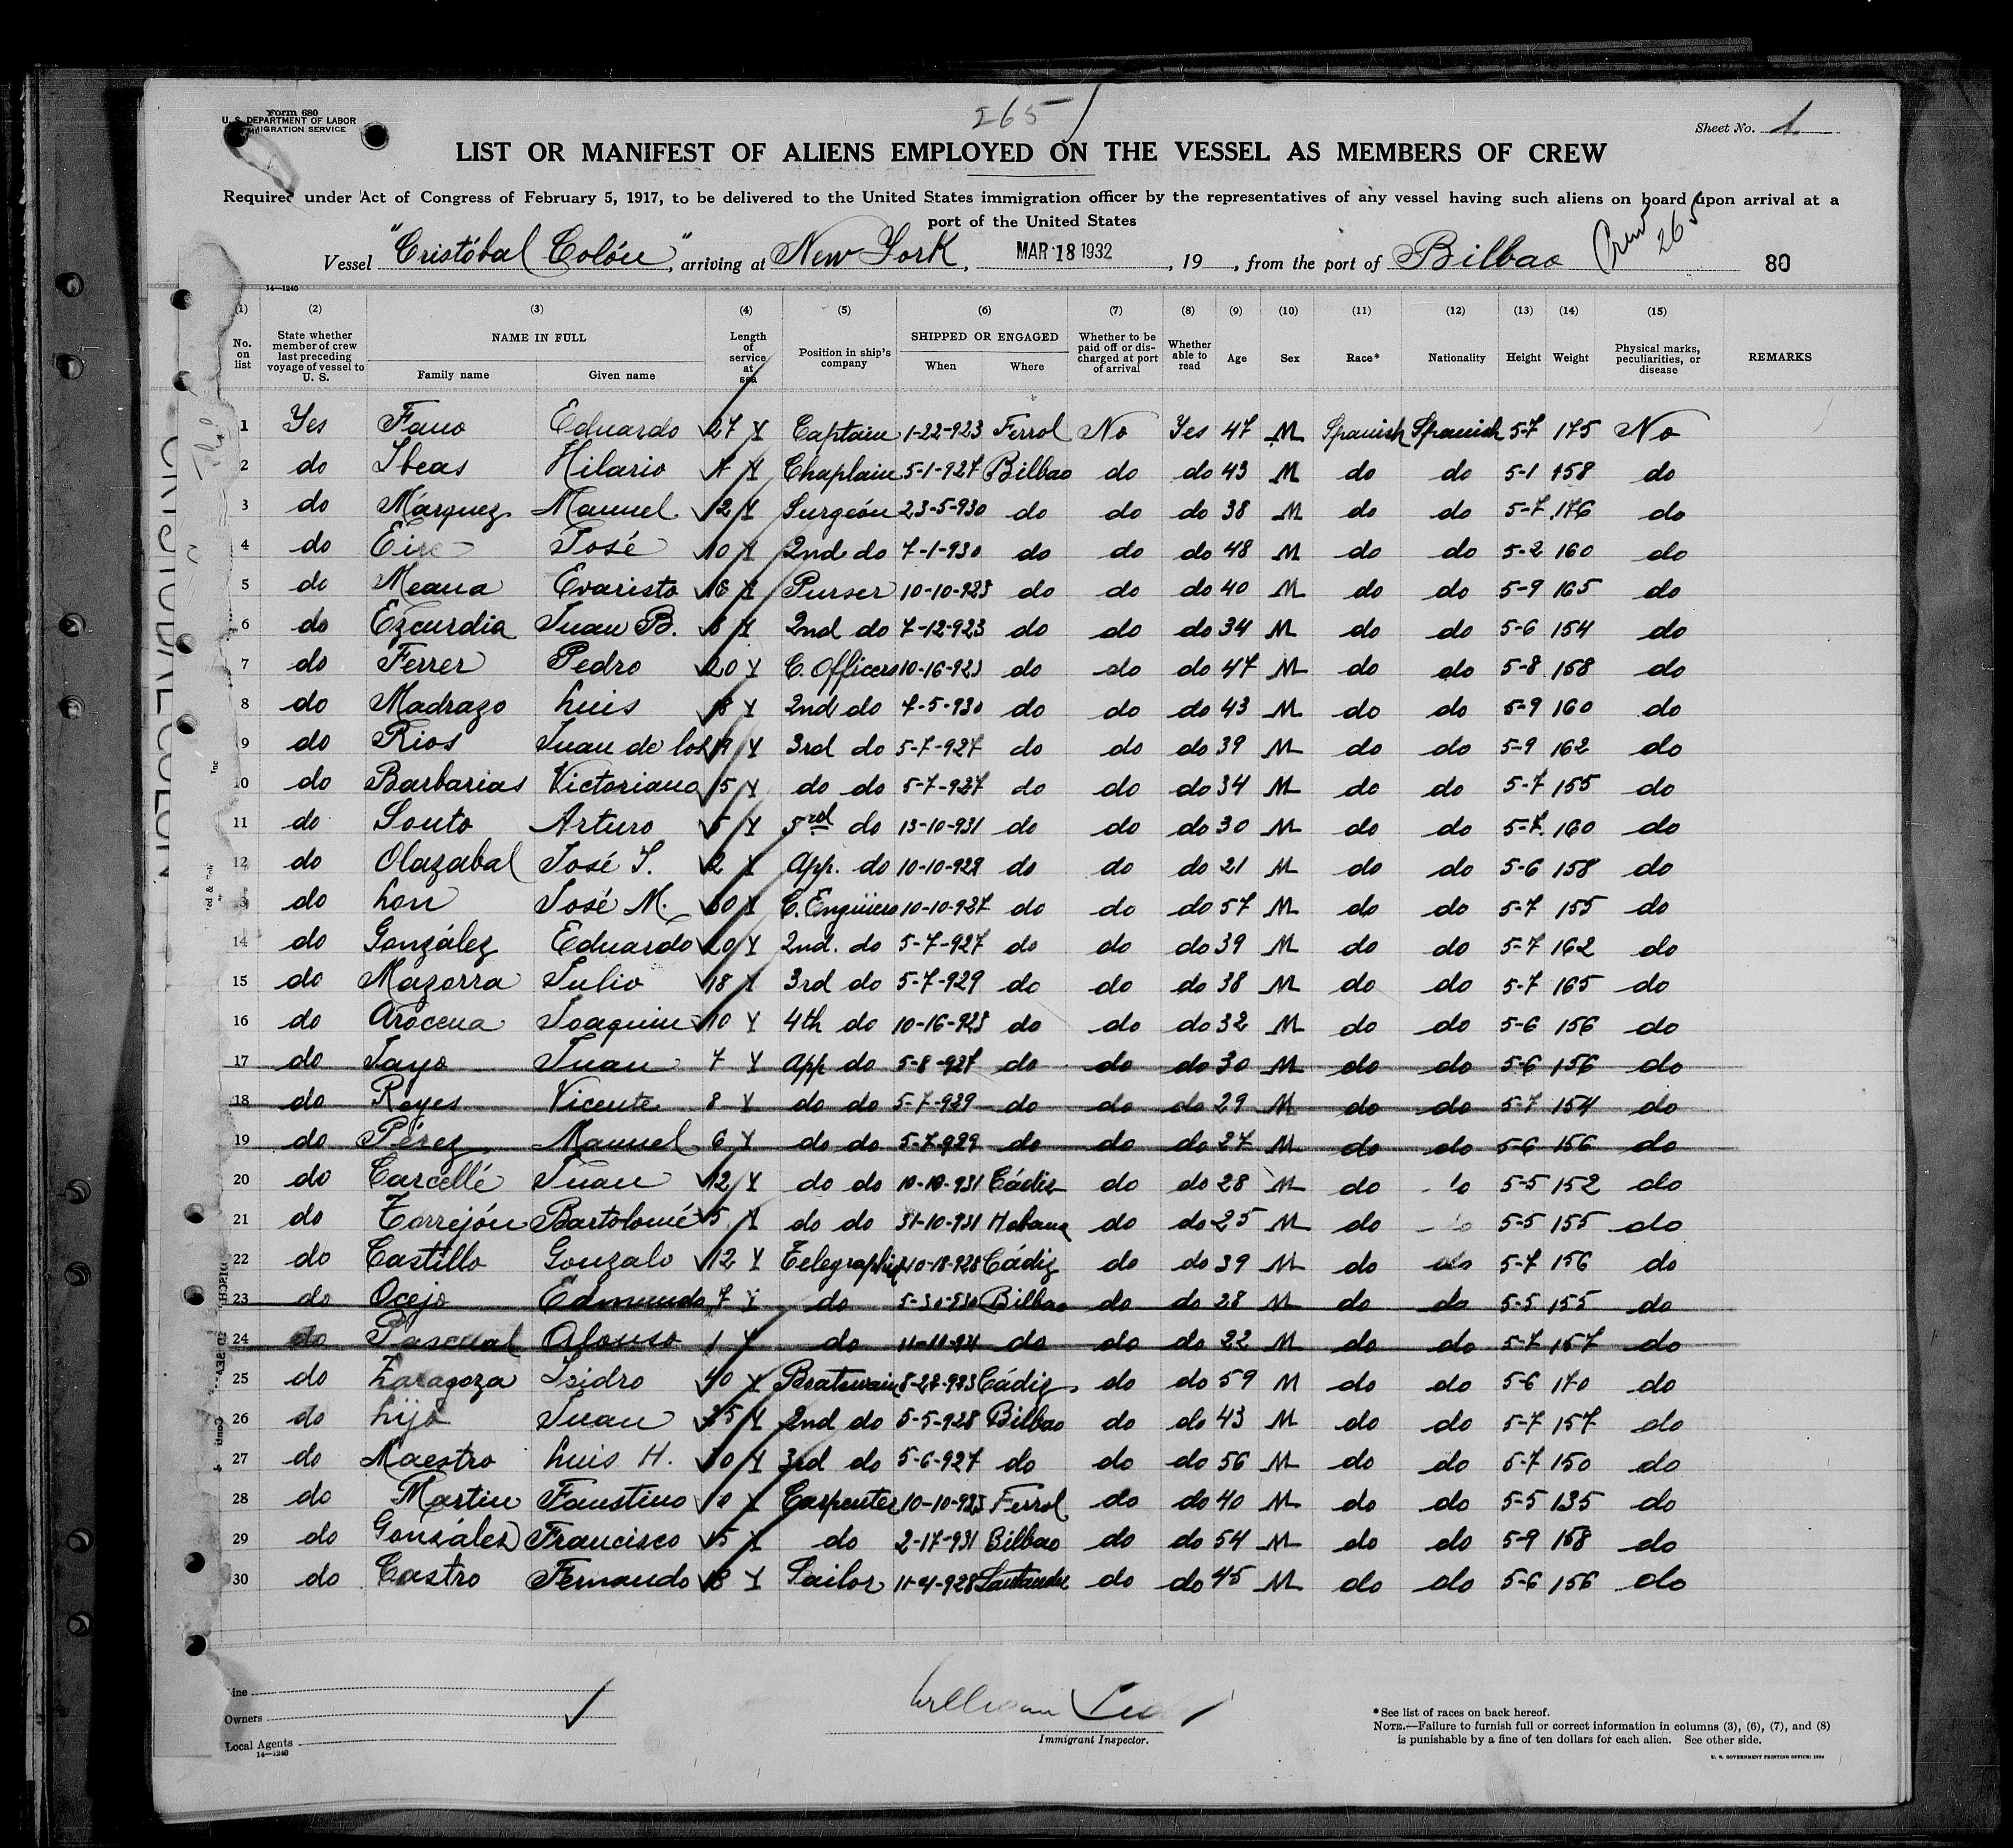 265
Form 680
U. S. DEPARTMENT OF LABOR
IMMIGRATION SERVICE
Sheet No. 1
LIST OR MANIFEST OF ALIENS EMPLOYED ON THE VESSEL AS MEMBERS OF CREW
Required under Act of Congress of February 5, 1917, to be delivered to the United States immigration officer by the representatives of any vessel having such aliens on board upon arrival at a
port of the United States
Vessel "Cristóbal Colón", arriving at New York, MAR 18 1932, 19 , from the port of Bilbao Crew 265 80
14—1240
(1) (2) (3) (4) (5) (6) (7) (8) (9) (10) (11) (12) (13) (14) (15)
No. on list State whether member of crew last preceding voyage of vessel to U. S. NAME IN FULL Family name Given name Length of service at sea Position in ship's company SHIPPED OR ENGAGED When Where Whether to be paid off or discharged at port of arrival Whether able to read Age Sex Race* Nationality Height Weight Physical marks, peculiarities, or disease REMARKS
1 Yes Fano Eduardo 27 Y Captain 1-22-923 Ferrol No Yes 47 M Spanish Spanish 5-7 175 No
2 do Ibeas Hilario Y Chaplain 5-1-927 Bilbao do do 43 M do do 5-1 158 do
3 do Márquez Manuel 12 Y Surgeón 23-5-930 do do do 38 M do do 5-7 176 do
4 do José 10 Y 2nd do 7-1-930 do do do 48 M do do 5-2 160 do
5 do Meana Evaristo 16 Y Purser 10-10-923 do do do 40 M do do 5-9 165 do
6 do Ezcurdia Juan B. Y 2nd do 7-12-923 do do do 34 M do do 5-6 154 do
7 do Ferrer Pedro 20 Y C. Officers 10-16-923 do do do 47 M do do 5-8 158 do
8 do Madrazo Luis 18 Y 2nd do 7-5-930 do do do 43 M do do 5-9 160 do
9 do Rios Juan de los 19 Y 3rd do 5-7-927 do do do 39 M do do 5-9 162 do
10 do Barbarias Victoriano 15 Y do do 5-7-927 do do do 34 M do do 5-7 155 do
11 do Souto Arturo 5 Y 3rd do 13-10-931 do do do 30 M do do 5-7 160 do
12 do Olazabal José I. 2 Y App. do 10-10-929 do do do 21 M do do 5-6 158 do
13 do Lon José M. 30 Y C. Engineer 10-10-927 do do do 57 M do do 5-7 155 do
14 do González Eduardo 20 Y 2nd. do 5-7-927 do do do 39 M do do 5-7 162 do
15 do Mazorra Julio 18 Y 3rd do 5-7-929 do do do 38 M do do 5-7 165 do
16 do Arocena Joaquin 10 Y 4th do 10-16-923 do do do 32 M do do 5-6 156 do
17 do Jayo Juan 7 Y App do 5-8-927 do do do 30 M do do 5-6 156 do
18 do Reyes Vicente 8 Y do do 5-7-929 do do do 29 M do do 5-7 154 do
19 do Pérez Manuel 6 Y do do 5-7-929 do do do 27 M do do 5-6 156 do
20 do Carcellé Juan 12 Y do do 10-10-931 Cádiz do do 28 M do do 5-5 152 do
21 do Torrejón Bartolomé 5 Y do do 31-10-931 Habana do do 25 M do do 5-5 155 do
22 do Castillo Gonzalo 12 Y Telegraphist 10-18-928 Cádiz do do 39 M do do 5-7 156 do
23 do Ocejo Edmundo 7 Y do 5-30-930 Bilbao do do 28 M do do 5-5 155 do
24 do Pascual Alonso 1 Y do 11-11-931 do do do 22 M do do 5-7 157 do
25 do Zaragoza Isidro 40 Y Boatswain 8-27-923 Cádiz do do 59 M do do 5-6 170 do
26 do Lijó Juan 25 Y 2nd do 5-5-928 Bilbao do do 43 M do do 5-7 157 do
27 do Maestro Luis H. 30 Y 3rd do 5-6-927 do do do 56 M do do 5-7 150 do
28 do Martin Faustino 10 Y Carpenter 10-10-923 Ferrol do do 40 M do do 5-5 135 do
29 do Gonsález Francisco 15 Y do 2-17-931 Bilbao do do 54 M do do 5-9 158 do
30 do Castro Fernando 18 Y Sailor 11-4-928 Santander do do 45 M do do 5-6 156 do
Line
Owners
Local Agents
14—1240
William
Immigrant Inspector.
*See list of races on back hereof.
NOTE.—Failure to furnish full or correct information in columns (3), (6), (7), and (8)
is punishable by a fine of ten dollars for each alien. See other side.
U. S. GOVERNMENT PRINTING OFFICE: 1929
CRISTOBAL COLON